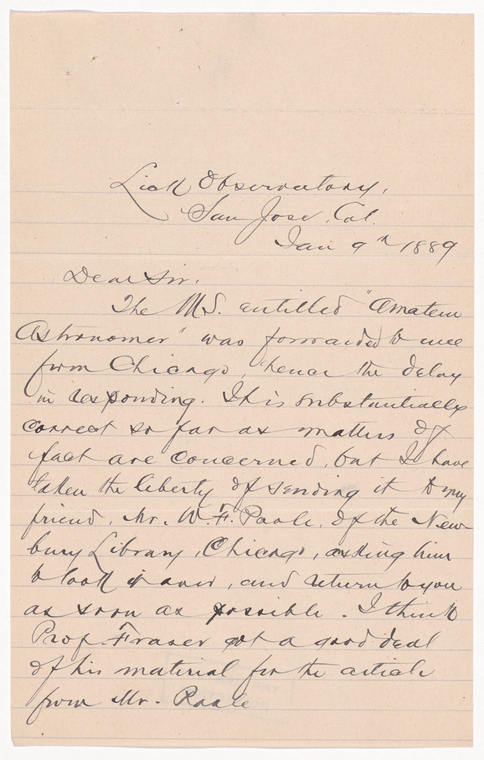 Lick Observatory,
San Jose, Cal.
Jan 9th 1889
Dear Sir.
The MS. entitled "Amateur
Astronomer" was forwarded to me
from Chicago, hence the delay
in responding. It is substantially
correct so far as matters of
fact are concerned, but I have
taken the liberty of sending it to my
friend, Mr. W. F. Poole, of the New-
bury Library, Chicago, asking him
to look it over, and return to you
as soon as possible. I think
Prof. Fraser got a good deal
of his material for the article
from Mr. Poole